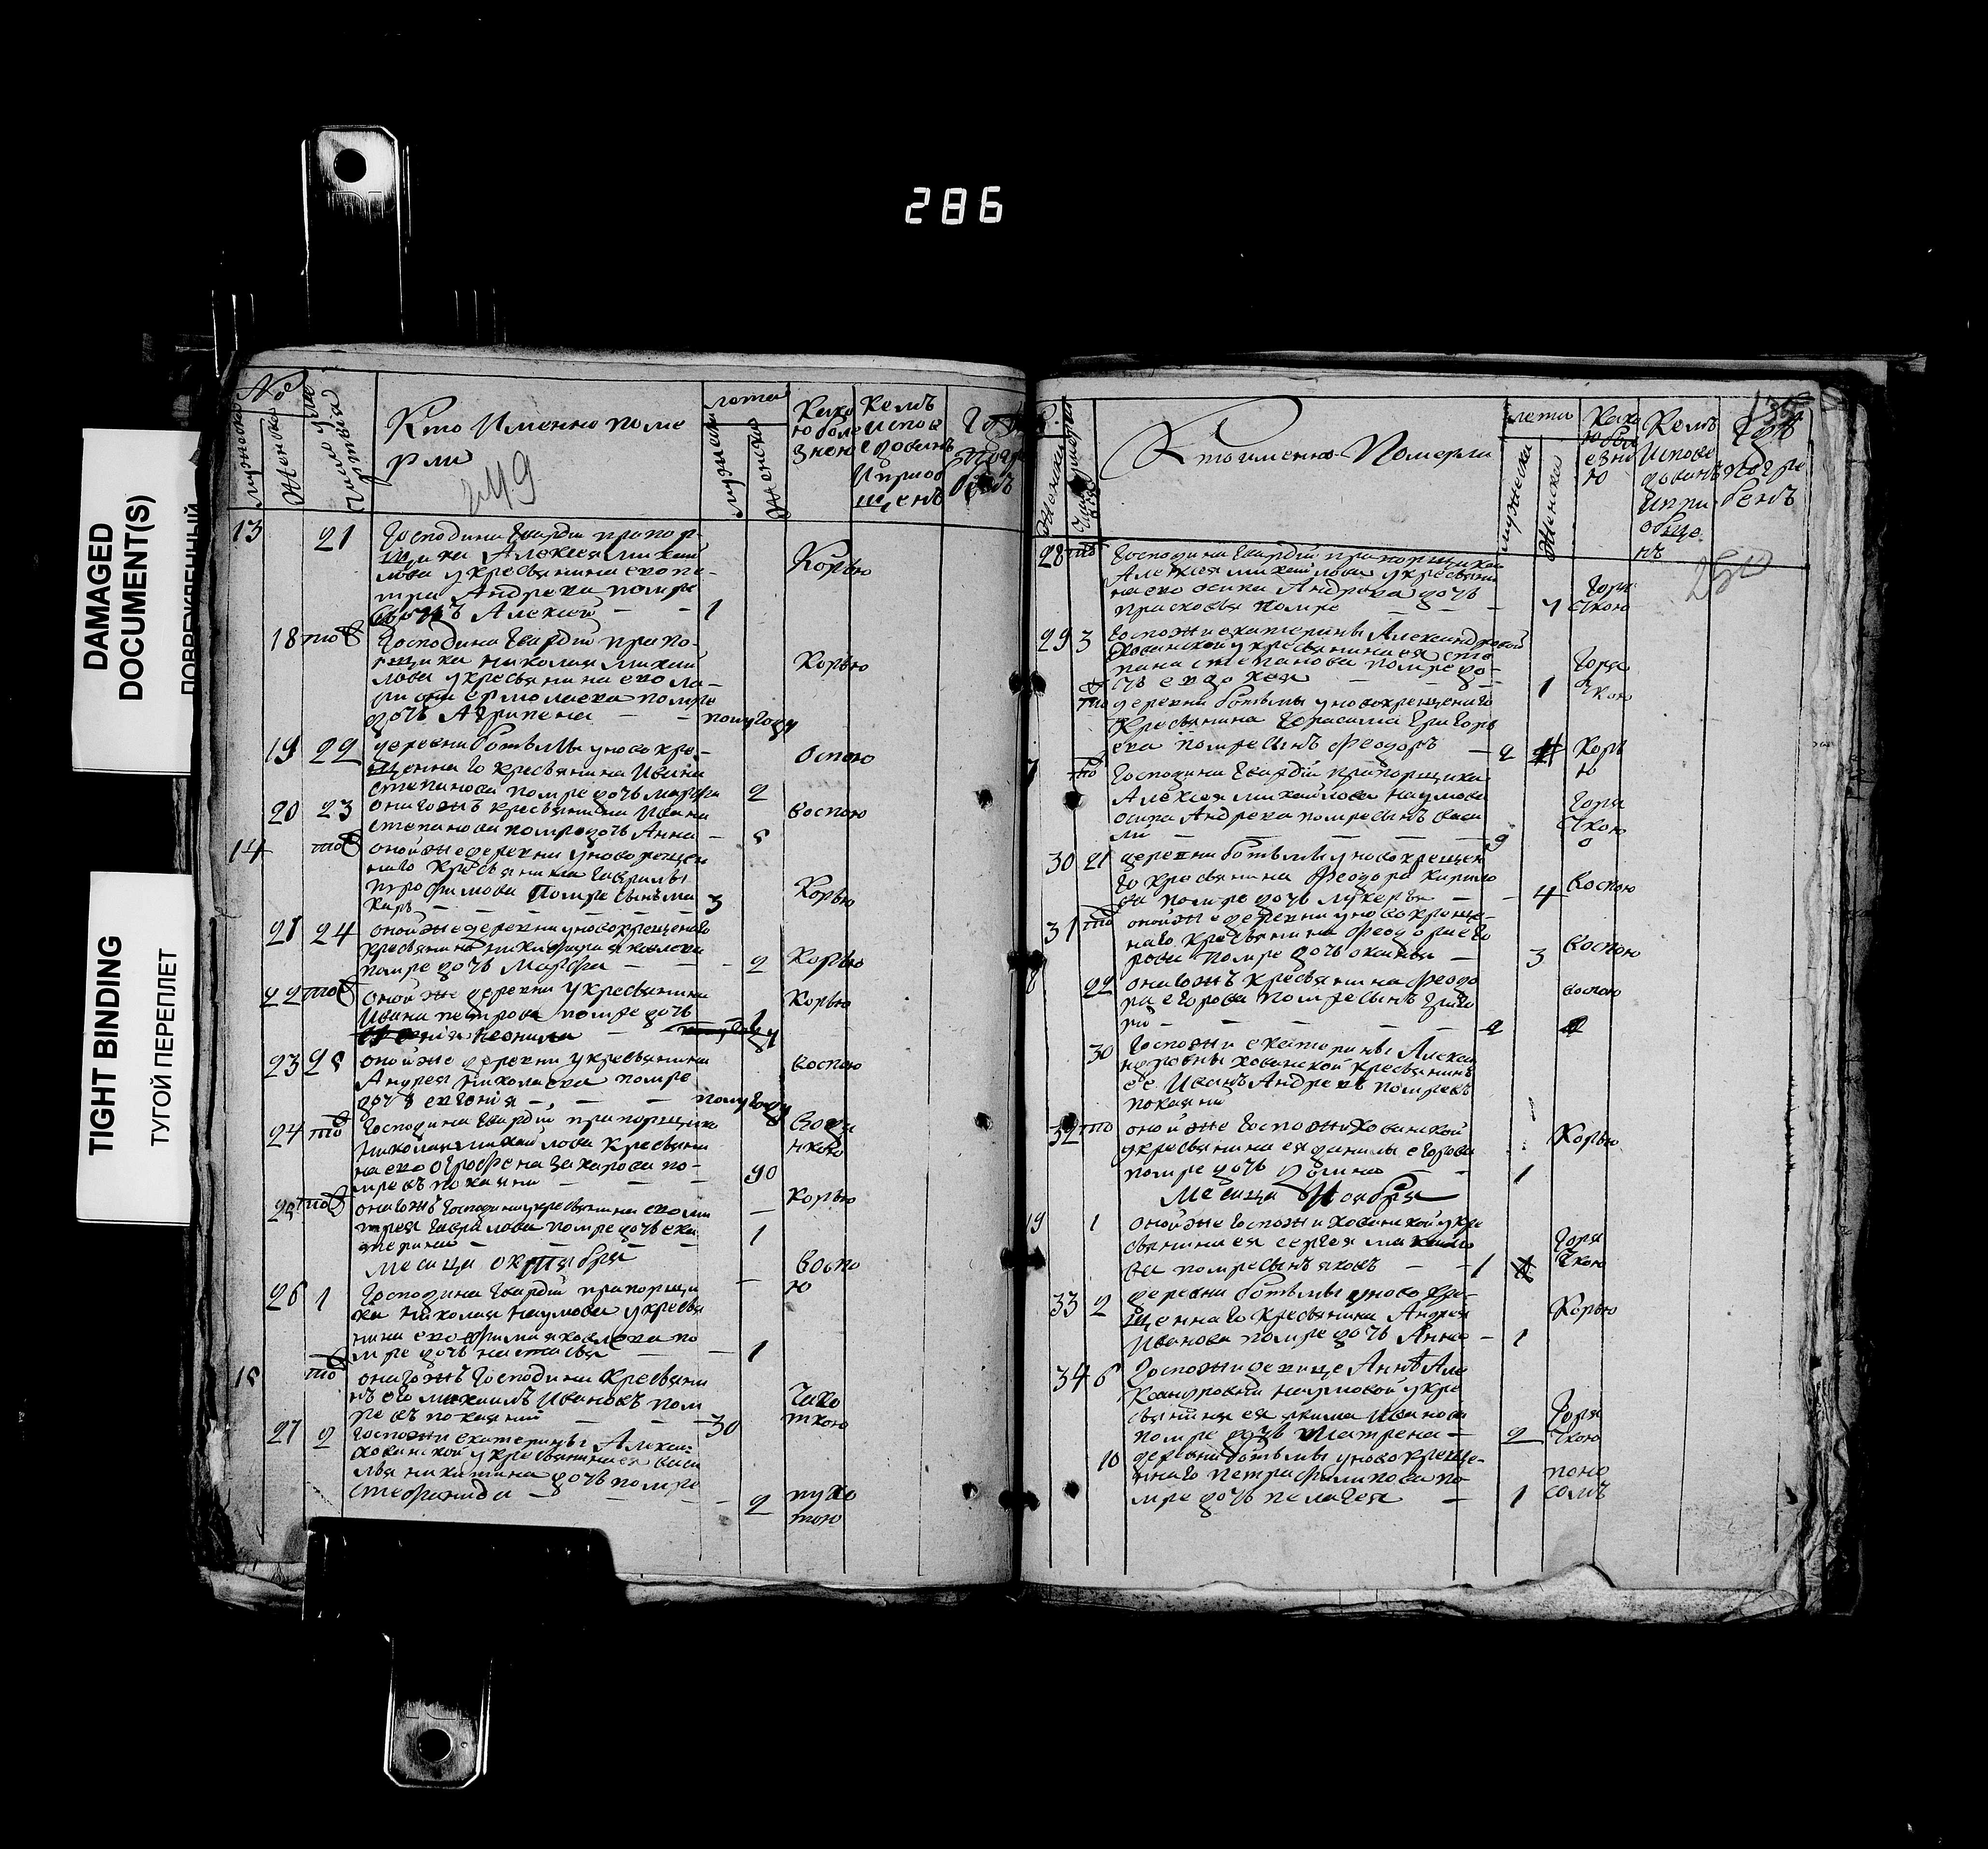 286
DAMAGED
DOCUMENT(S)
TIGHT BINDING
ТУГОЙ ПЕРЕПЛЕТ
№
мужеска
Женска
Число умертвия
Кто Именно поме
рли
249
лета
мужеска
женска
Како
ю боле
знею
кемъ
испов
едованъ
13 21 Господина Гвардіи прапор-
щика Алексея Михаи
лова у кресьянина его пе-
тра Андреева помре
сынъ Алексей — — 1
Корью
18 тоѣ Господина Гвардіи прапо-
рщика Николая Михаи
лова у кресьянина его ла-
риона ермолаева помре
дочь Агрипена — — полугоду
Корью
19 22 деревни ботьмы у новокре-
щеннаго кресьянина Ивана
степанова помре дочь марфа 2
Оспою
20 23 онагожъ кресьянина Ивана
степанова помре дочь Анна — 5
воспою
14 тоѣ оной же деревни у новокрещен
наго кресьянина Гаврилы
трофимова помре сынъ ма
каръ — — — — 3
Корью
21 24 оной же деревни у новокрещенаго
кресьянина никифора яковлева
помре дочь Марфа — — 2
Корью
22 тоѣ оной же деревни у кресьянина
Ивана петрова помре дочь
неонила —
Корью
23 25 оной же деревни у кресьянина
Андрея Николаева помре
дочь евгения — — полугоду
воспою
24 тоѣ Господина Гвардіи прапорщика
Николая михаилова кресьяни
на его Огрофена Захарова по-
мре въ покаяни — — 90
25 тоѣ онагожъ Господина у кресьянина его
Гаврилова помре дочь ека
терина — — — 1
Корью
Месяца октября
26 1 Господина Гвардіи прапорщи
ка Николая Наумова у кресья
нина его ефима яковлева по
мре дочь настасья — — 1
Воспо
ю
15 тоѣ онагожъ Господина Кресьяни
нъ его михаилъ Ивановъ пом
ре въ покаяний — — 30
Чахо
ткою
27 2 Госпожи екатерины Алексан
хованской у кресьянина ея васи
лья никитина дочь помре
стефанида — — — 2
Женска
Кто именно Померли
лета
мужеска
Женска
Кемъ
Испове
дованъ
и при
обще
нъ
погре
бенъ
250
28 то Господина Гвардіи прапорщика
Алексея михаилова у кресьяни
на его осипа Андреева дочь
прасковья помре — —
Горя
чкою
29 3 Госпожи екатерины Александровой
Хованской у кресьянина ея сте
пана степанова помре до-
чь евдокея — — 1
Горя
чкою
тоѣ деревни ботьмы у новокрещенаго
кресьянина Герасима Григорь
ева помре сынъ Феодоръ — 2
Корь
ю
тоѣ Господина Гвардіи прапорщика
Алексея михаилова Наумова
осипа Андреева помре сынъ васи
ли — — — 9
Горя
чкою
30 21 деревни ботьмы у новокрещен
го кресьянина Феодора кирило
ва помре дочь лукерья — — 4
Воспою
31 тоѣ оной же деревни у новокреще-
наго кресьянина Феодора его
рова помре дочь — 3
Воспою
22 онагожъ кресьянина Феодо
ра егорова помре сынъ григо
рий — — — 2
воспою
30 Госпожи екатерины Алексан
дровны хованской кресьянинъ
ее Иванъ Андреевъ помре въ
покаяни
32 тоѣ оной же Госпожи Хованской
у кресьянина ея данилы егорова
помре дочь — — 1
Корью
Месяца Ноября
19 1 оной же Госпожи хованской у кре
сьянина ея сергея
ва помре сынъ яковъ — — 1
Горя
чкою
33 2 деревни ботьмы у новокре-
щеннаго кресьянина Андрея
Иванова помре дочь Анна — 1
Корью
34 6 Госпожи девице Анне Але
ксандровны наумовой у кре
сьянина ея якима Иванова
помре дочь Матрена — 2
Горя
чкою
10 деревни ботьмы у новокреще-
ннаго петра филипова по-
мре дочь пелагея — 1
поно
сомъ